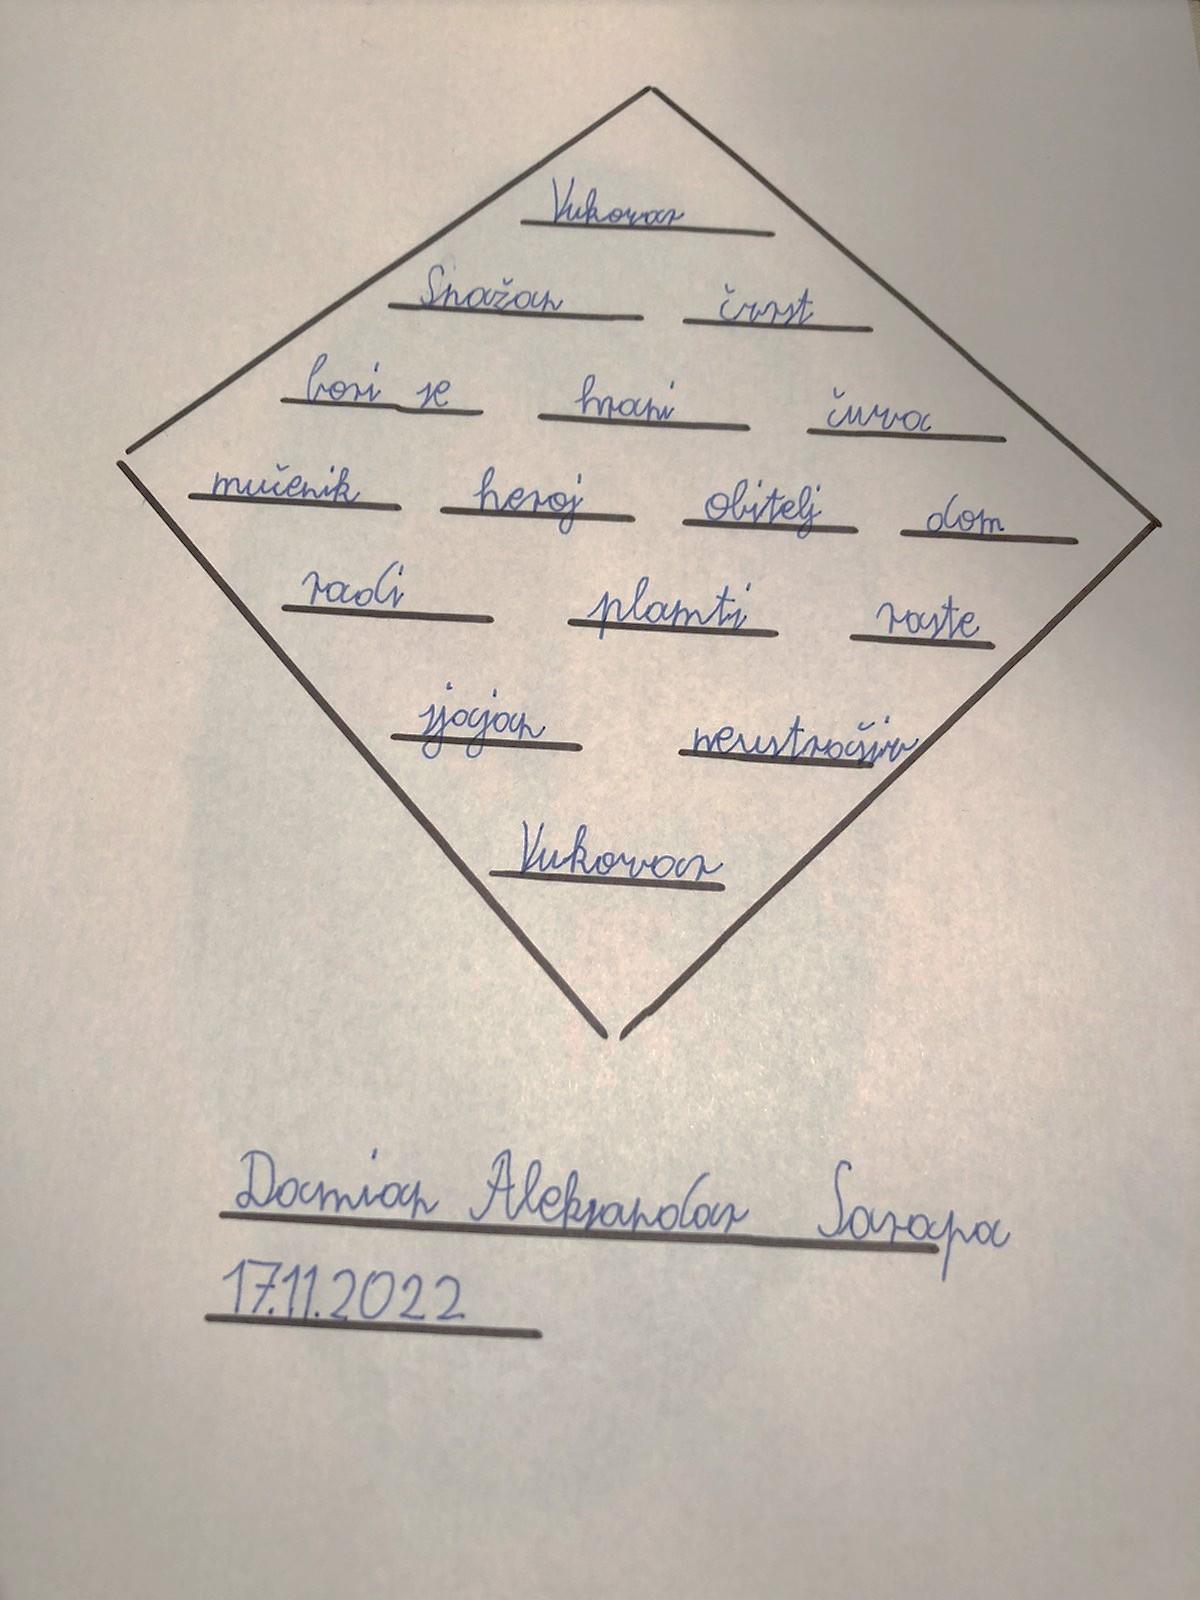 Vukovar
Snažan čvrst
bori se hrani čuva
mučenik heroj obitelj dom
radi plamti raste
sjajan neustrašiv
Vukovar
Damian Aleksandar Sarapa
17.11.2022